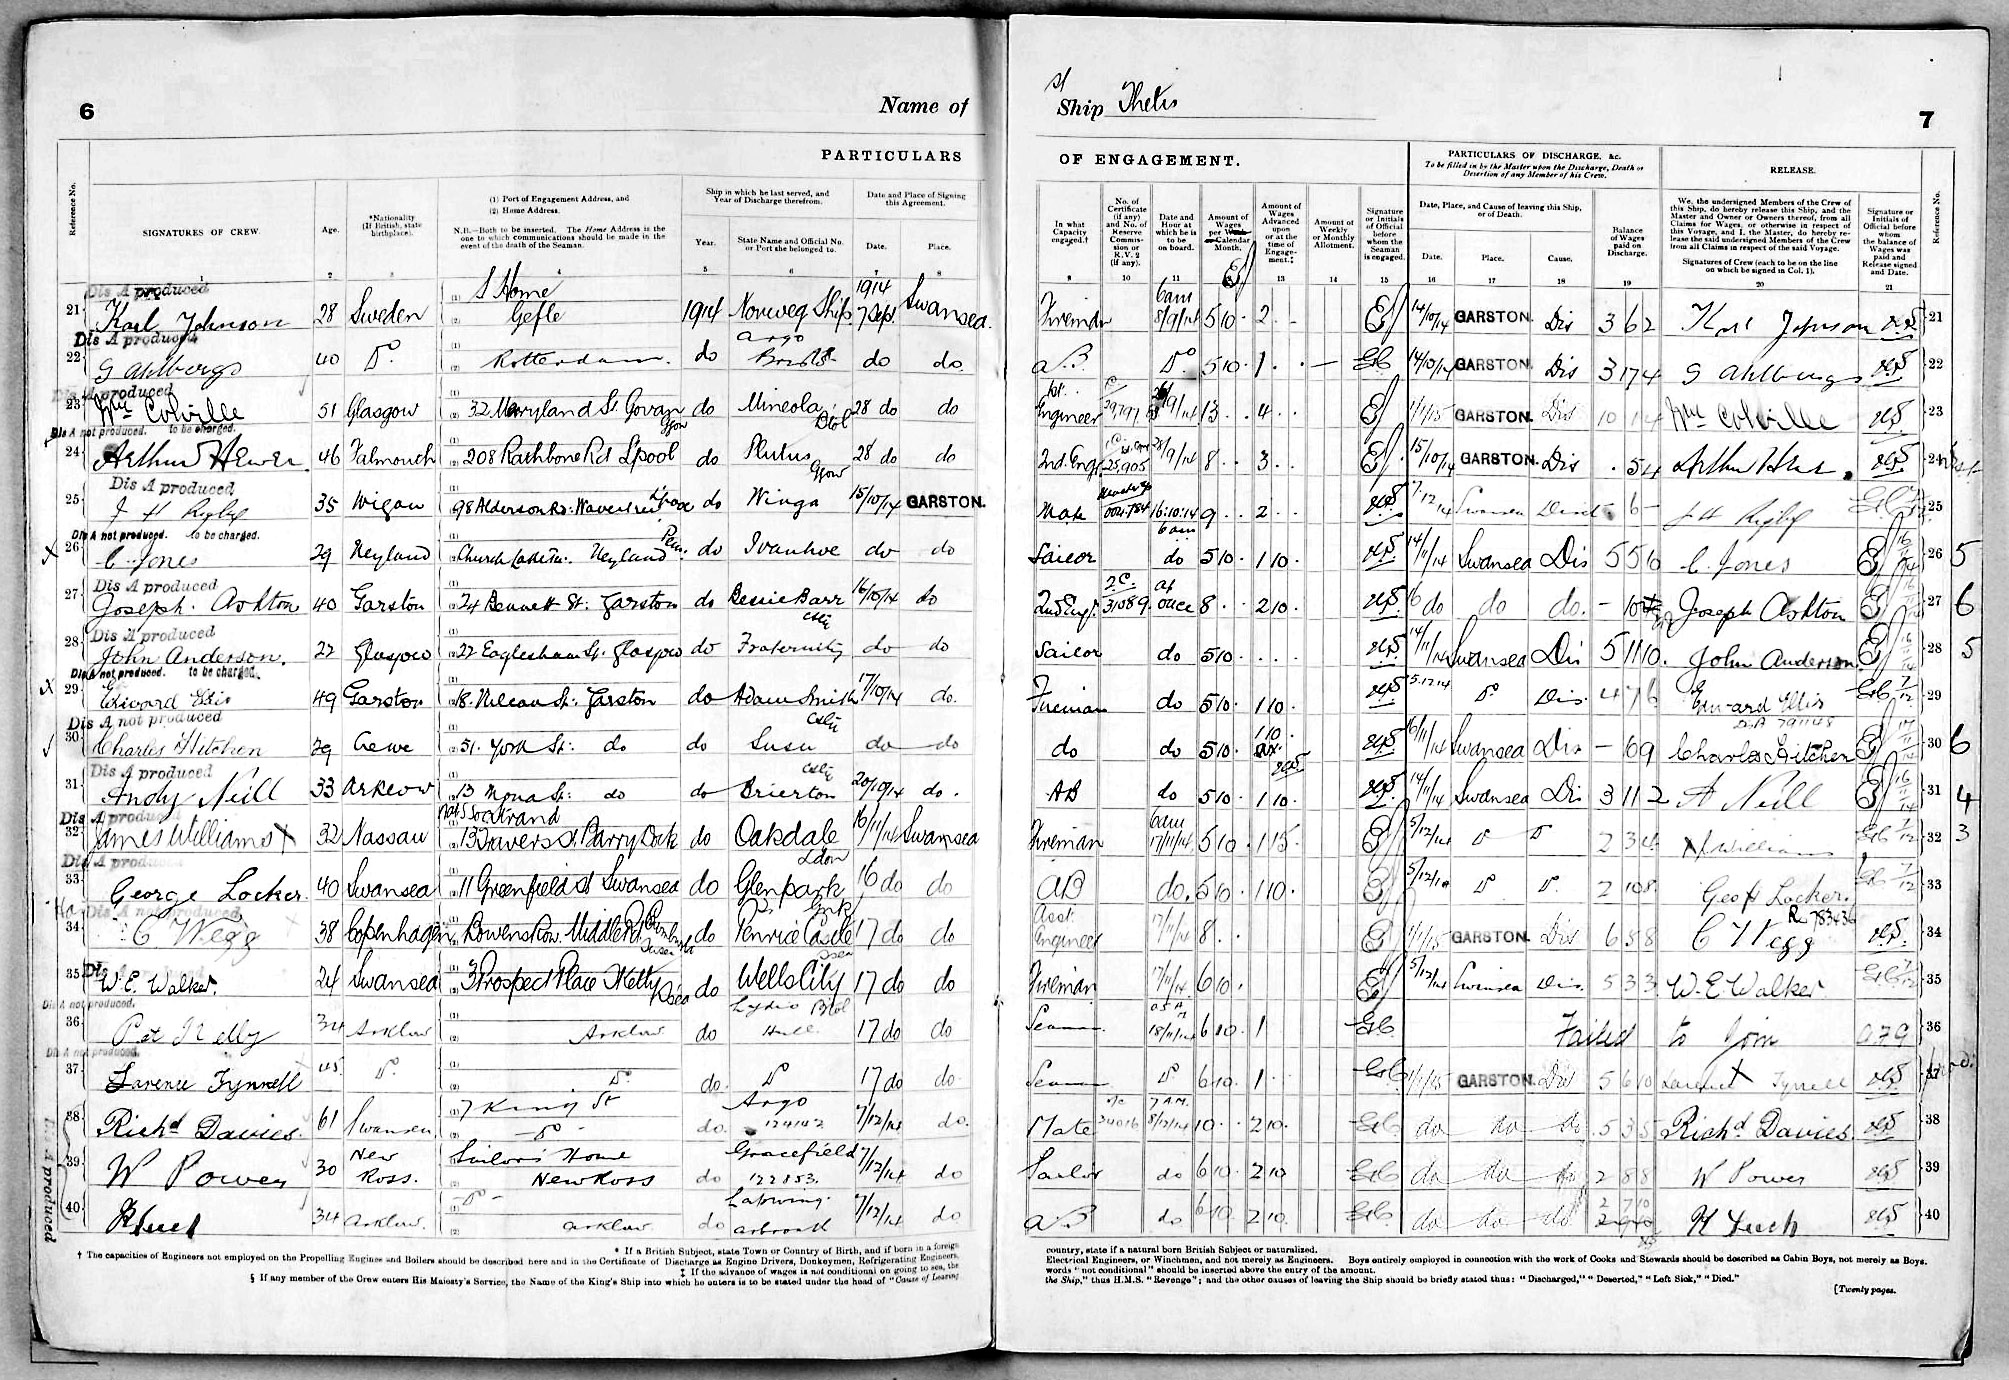 6
Name of
PARTICULARS
Reference No.
SIGNATURES OF CREW.
Age.
*Nationality (If British, state birthplace).
(1) Port of Engagement Address, and
(2) Home Address.
N.B.—Both to be inserted. The Home Address is the one to which communications should be made in the event of the death of the Seaman.
Ship in which he last served, and Year of Discharge therefrom.
Year.
State Name and Official No. or Port she belonged to.
Date and Place of Signing this Agreement.
Date.
Place.
1 2 3 4 5 6 7 8
Dis A produced
21 Karl Johnson 28 Sweden S Home Gefle 1914 Norweg Ship 1914 7 Sept. Swansea.
Dis A produced
22 G Ahlbergs 40 Do. Rotterdam. do Argo Bristol do do
Dis A produced
23 Wm Colville 51 Glasgow 32 Maryland St Govan Ggow do Mineola Btol 28 do do
Dis A not produced. to be charged.
24 Arthur Hewer 46 Falmouth 208 Rathbone Rd L'pool do Plutus Ggow 28 do do
Dis A produced
25 J H Rigby 35 Wigan 98 Alderson Rd: Wavertree L'pool do Winga 15/10/14 GARSTON.
Dis A not produced. to be charged.
26 C. Jones 29 Neyland Church Lake Tce. Neyland Pem. do Ivanhoe do do
Dis A produced
27 Joseph. Ashton 40 Garston 24 Bennett St: Garston do Bessie Barr 16/10/14 do
Dis A produced
28 John Anderson. 22 Glasgow 22 Eaglesham St. Glasgow do Fraternity do do
Dis A not produced. to be charged.
29 Edward Ellis 49 Garston 18. Nelson St: Garston do Adam Smith 17/10/14 do.
Dis A not produced
30 Charles Hitchen 29 Crewe 51. York St: do do Susu do do
Dis A produced
31 Andy Neill 33 Arklow 13 Mona St: do do Brierton 20/10/14 do.
Dis A produced
32 James Williams X 32 Nassau 13 Travers St. Barry Dock do Oakdale Ldon 16/11/14 Swansea
Dis A produced
33 George Locker. 40 Swansea 11 Greenfield St Swansea do Glenpark 16 do do
Dis A not produced
34 C Wegg 38 Copenhagen Bowens Row. Middle Rd do Penrice Castle 17 do do
35 W. E. Walker. 24 Swansea 3 Prospect Place Sketty Ssea do Wells City 17 do do
Dis A not produced.
36 Pat Kelly 34 Arklow Arklow do Hull 17 do do
Dis A not produced.
37 Larence Tyrrell 45 Do. Do. do. Do 17 do do
38 Richd Davies. 61 Swansea 7 King St Do do. Argo 124142 7/12/14 do.
39 W Power 30 New Ross. Sailors Home New Ross do Gracefield 122853. 7/12/14 do
40 34 Arklow. Do Arklow do Lapwing 7/12/14 do
Dis A produced
* If a British Subject, state Town or Country of Birth, and if born in a foreign
† The capacities of Engineers not employed on the Propelling Engines and Boilers should be described here and in the Certificate of Discharge as Engine Drivers, Donkeymen, Refrigerating Engineers,
‡ If the advance of wages is not conditional on going to sea, the
§ If any member of the Crew enters His Majesty's Service, the Name of the King's Ship into which he enters is to be stated under the head of "Cause of Leaving
Ship Thetis
7
OF ENGAGEMENT.
PARTICULARS OF DISCHARGE, &c.
To be filled in by the Master upon the Discharge, Death or Desertion of any Member of his Crew.
RELEASE.
In what Capacity engaged.†
No. of Certificate (if any) and No. of Reserve Commission or R.V.2 (if any).
Date and Hour at which he is to be on board.
Amount of Wages per Week or Calendar Month.
Amount of Wages Advanced upon or at the time of Engagement.‡
Amount of Weekly or Monthly Allotment.
Signature or Initials of Official before whom the Seaman is engaged.
Date, Place, and Cause of leaving this Ship, or of Death.
Date.
Place.
Cause.
Balance of Wages paid on Discharge.
We, the undersigned Members of the Crew of this Ship, do hereby release this Ship, and the Master and Owner or Owners thereof, from all Claims for Wages, or otherwise in respect of this Voyage, and I, the Master, do hereby release the said undersigned Members of the Crew from all Claims in respect of the said Voyage.
Signatures of Crew (each to be on the line on which he signed in Col. 1).
Signature or Initials of Official before whom the balance of Wages was paid and Release signed and Date.
Reference No.
9 10 11 13 14 15 16 17 18 19 20 21
Fireman 6am 8/9/14 5 10 . 2 . 14/10/14 GARSTON. Dis 3 6 2 Karl Johnson 21
A.B. Do. 5 10 . 1 . . 14/10/14 GARSTON Dis 3 17 4 G Ahlbergs 22
1st. Engineer 13 . . 4 . . 1/1/15 GARSTON. Dis 10 14 Wm Colville 23
2nd Engr. 25905 28/9/14 8 . . 3 . . 15/10/14 GARSTON. Dis . 5 4 Arthur Hewer 24
Mate 16:10:14 6am 9 . . 2 . . 7.12.14 Swansea 6 J H Rigby 25
Sailor do 5 10 . 1 10 . 14/11/14 Swansea Dis 5 5 6 C. Jones 26 5
2nd Engr. 31089 at once 8 . . 2 10 . 16 do do do. Joseph Ashton 27 6
Sailor do 5 10 . . . . 14/11/14 Swansea Dis 5 11 10. John Anderson. 28 5
Fireman do 5 10 . 1 10 . 5.12.14 Do Dis. 4 7 6 Edward Ellis 29
do do 5 10 . 1 10 . 16/11/14 Swansea Dis – 6 9 Charles Hitchen 30 6
AB do 5 10 . 1 10 . 14/11/14 Swansea Dis 3 11 2 A Neill 31 4
Fireman 6am 17/11/14 5 10 . 1 15 . 5/12/14 Do Do 2 3 4 X Williams 32 3
AB do. 5 10 . 1 10 . 5/12/14 Do Do. 2 10 8. Geo H Locker. 33
Asst Engineer 17/11/14 8 . . 1/1/15 GARSTON. Dis 6 5 8 C Wegg R 783436 34
Fireman 17/11/14. 6 10 . 5/12/14 Swansea Dis. 5 3 3 W. E. Walker 35
Seaman 18/11/14 6 10 . 1 Failed to Join 36
Seaman Do 6 10 . 1 . 1/1/15 GARSTON. Dis 5 6 10 Larence X Tyrrell 37
Mate 34016 7 A.M. 8/12/14 10 . . 2 10 . do do do 5 3 5 Richd Davies. 38
Sailor do 6 10 . 2 10 do do do 2 8 8 W Power 39
A.B. do 6 10 . 2 10 . do do do 2 7 10 40
country, state if a natural born British Subject or naturalized.
Electrical Engineers, or Winchmen, and not merely as Engineers. Boys entirely employed in connection with the work of Cooks and Stewards should be described as Cabin Boys, not merely as Boys.
words "not conditional" should be inserted above the entry of the amount.
the Ship," thus H.M.S. "Revenge"; and the other causes of leaving the Ship should be briefly stated thus: "Discharged," "Deserted," "Left Sick," "Died."
[Twenty pages.